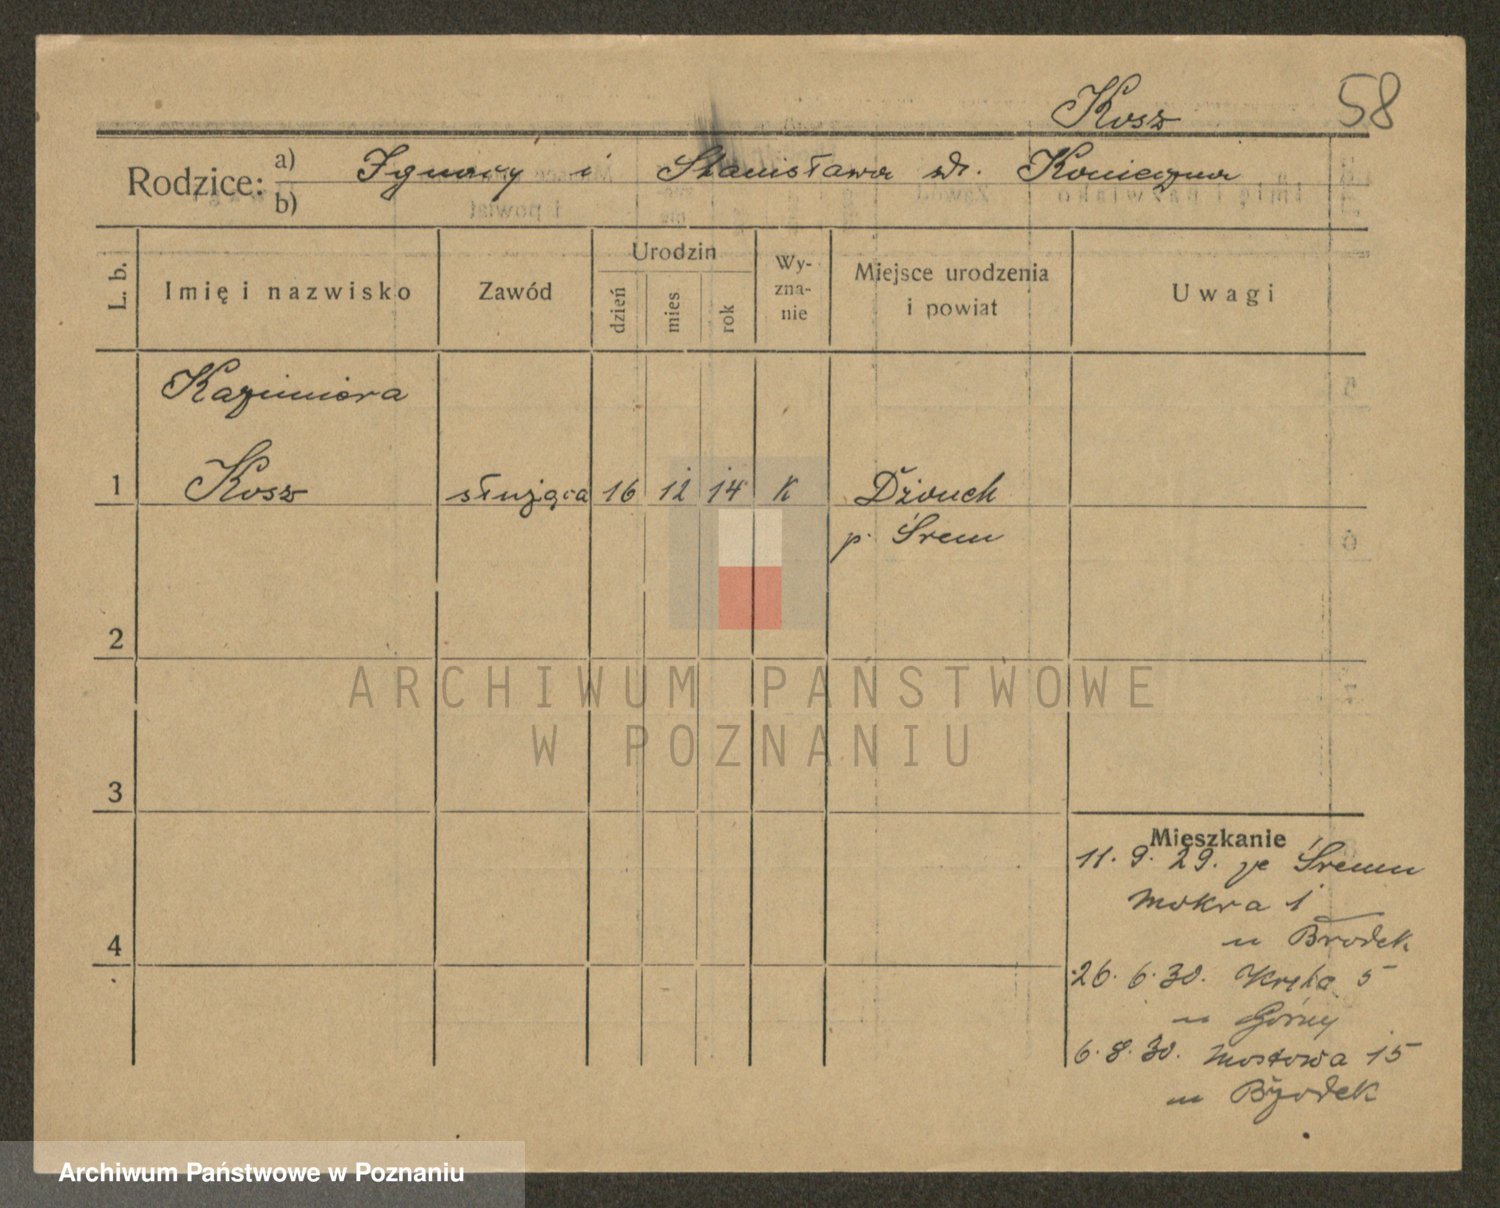 Kosz
58
Rodzice: a) Ignacy i Stanisława dr. Konieczna
b)
L. b.
Imię i nazwisko
Zawód
Urodzin
dzień
mies
rok
Wy-
zna-
nie
Miejsce urodzenia
i powiat
Uwagi
Kazimiera
1 Kosz służąca 16 12 14 K
p. Śrem
2
3
4
ARCHIWUM PAŃSTWOWE
W POZNANIU
Mieszkanie
11. 9. 29. ze Śremu
Mokra 1
u Brodek
26. 6. 30. 5
u Górny
6. 8. 30. Mostowa 15
u
Archiwum Państwowe w Poznaniu